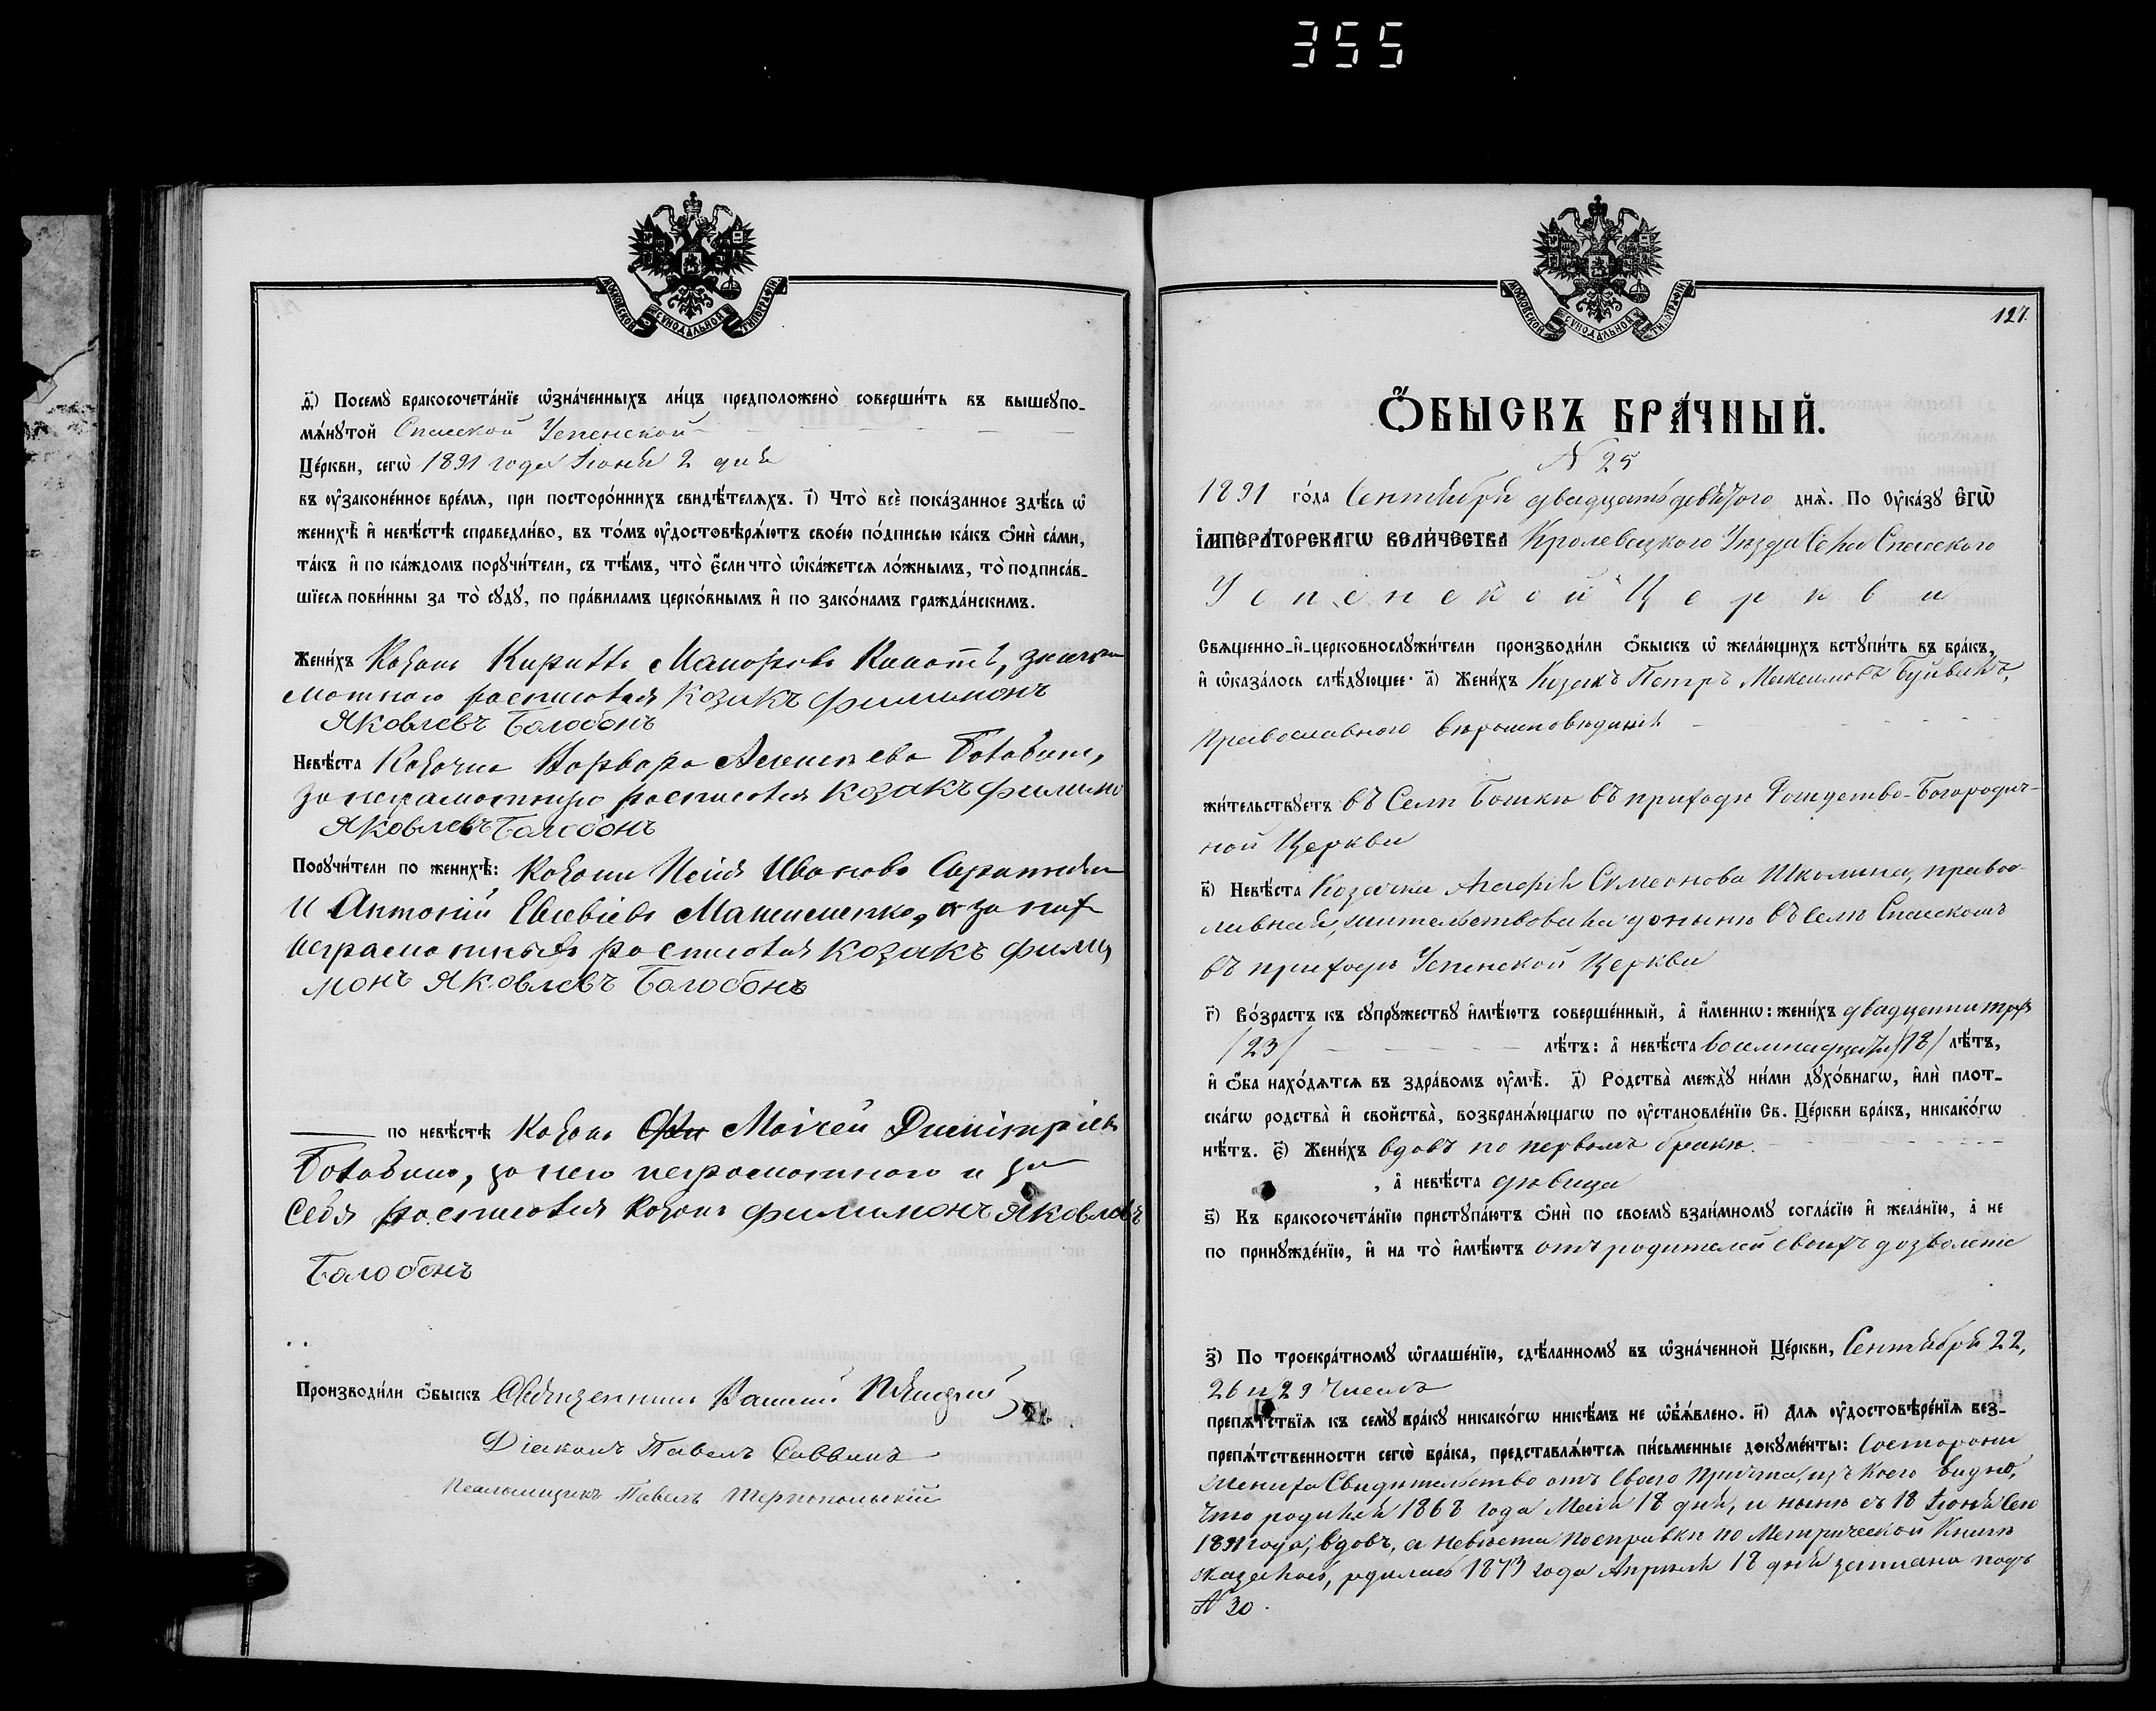 355
МОСКОВСКОЙ СѴНОДАЛЬНОЙ ТИПОГРАФІИ
ѳ҃) Посемꙋ̀ бракосочета́нїе ѡ҆зна́ченныхъ ли́цъ предположено̀ соверши́ть въ вышеꙋпо-
мѧ́нꙋтой Спасской Успенской
Це́ркви, сегѡ̀ 1891 года Іюня 2 дня
въ ᲂу҆законе́нное вре́мѧ, при посторо́ннихъ свидѣ́телѧхъ. і҃) Что̀ всѐ пока́занное здѣ́сь ѡ҆
женихѣ̀ и҆ невѣ́стѣ справедли́во, въ то́мъ ᲂу҆достовѣрѧ́ютъ свое́ю по́дписью ка́къ ѻ҆нѝ са́ми,
та́къ и҆ по ка́ждомъ порꙋчи́тели, съ тѣ́мъ, что̀ є҆́сли что̀ ѡ҆ка́жетсѧ ло́жнымъ, то̀ подписа́в-
шїесѧ пови́нны за то̀ сꙋдꙋ̀, по пра́виламъ церко́внымъ и҆ по зако́намъ гражда́нскимъ.
Жени́хъ Козакъ Кириллъ
росписался Козакъ Филимонъ
Яковлевъ Балобонъ
Невѣ́ста Козачка Варвара Алексѣева
за неграмотную росписался Козакъ Филимо
Яковлевъ Балобонъ
Порꙋчи́тели по женихѣ̀: Козаки Исай Ивановъ
и Антоній Евсевіевъ за нихъ
неграмотныхъ росписался Козакъ Фили
монъ Яковлевъ Балобонъ
по невѣ́стѣ Козакъ Моісей Димитріевъ
за него неграмотного и за
себя росписался Козакъ Филимонъ Яковлевъ
Балобонъ
Производи́ли ѻ҆́быскъ Священникъ
Діаконъ Павелъ Саввинъ
Псаломщикъ Павелъ Тернопольскій
МОСКОВСКОЙ СѴНОДАЛЬНОЙ ТИПОГРАФІИ
127.
Ѻ҆́БЫСКЪ БРА́ЧНЫЙ.
N 25
1891 го́да Сентября двадцать девятого днѧ̀. По ᲂу҆ка́зꙋ Є҆ГѠ̀
І҆МПЕРА́ТОРСКАГѠ ВЕЛИ́ЧЕСТВА Кролевецкого Уѣзда Села Спасского
Успенской Церкви
Свѧщенно-и҆-церковнослꙋжи́тели производи́ли ѻ҆́быскъ ѡ҆ жела́ющихъ встꙋпи́ть въ бра́къ,
и҆ ѡ҆каза́лось слѣ́дꙋющее: а҃) Жени́хъ Козакъ Петръ Максимовъ
Православного вѣроисповѣданія
жи́тельствꙋетъ въ Селѣ въ приходѣ Рождество-Богородич-
ной Церкви
в҃) Невѣ́ста Козачка Агафія Симеонова Школина, правос-
лавная, жительствовала доныне въ селѣ Спасскомъ
въ приходѣ Успенской Церкви
г҃) Во́зрастъ къ сꙋпрꙋ́жествꙋ и҆мѣ́ютъ соверше́нный, а҆ и҆́меннѡ: жени́хъ двадцати трехъ
/23/ лѣ́тъ: а҆ невѣ́ста восемнадцати /18/ лѣ́тъ,
и҆ ѻ҆́ба нахо́дѧтсѧ въ здра́вомъ ᲂу҆мѣ̀. д҃) Родства̀ междꙋ̀ ни́ми дꙋхо́внагѡ, и҆лѝ плот-
ска́гѡ родства̀ и҆ свойства̀, возбранѧ́ющагѡ по ᲂу҆становле́нїю Св. Це́ркви бра́къ, никако́гѡ
нѣ́тъ. є҃) Жени́хъ вдовъ по первомъ бракѣ
, а҆ невѣ́ста дѣвица
ѕ҃) Къ бракосочета́нїю пристꙋпа́ютъ ѻ҆нѝ по своемꙋ̀ взаи́мномꙋ согла́сїю и҆ жела́нїю, а҆ не
по принꙋжде́нїю, и҆ на то̀ и҆мѣ́ютъ отъ родителей своихъ дозволеніе
з҃) По троекра́тномꙋ ѡ҆глаше́нїю, сдѣ́ланномꙋ въ ѡ҆зна́ченной Це́ркви, Сентября 22,
26 и 29 чиселъ
препѧ́тствїѧ къ семꙋ̀ бра́кꙋ никако́гѡ никѣ́мъ не ѡ҆б̾ѧ́влено. и҃) Длѧ ᲂу҆достовѣре́нїѧ без-
препѧ́тственности сегѡ̀ бра́ка, представлѧ́ютсѧ пи́сьменные докꙋме́нты: Состороны
жениха Свидѣтельство отъ своего причта, изъ коего видно,
что родился 1868 года Мая 18 дня, и нынѣ съ 18 Іюня сего
1891 года, вдовъ, а невѣста посправкѣ по Метрической Книгѣ
оказалось, родилась 1873 года Апрѣля 18 дня записана подъ
N 30.